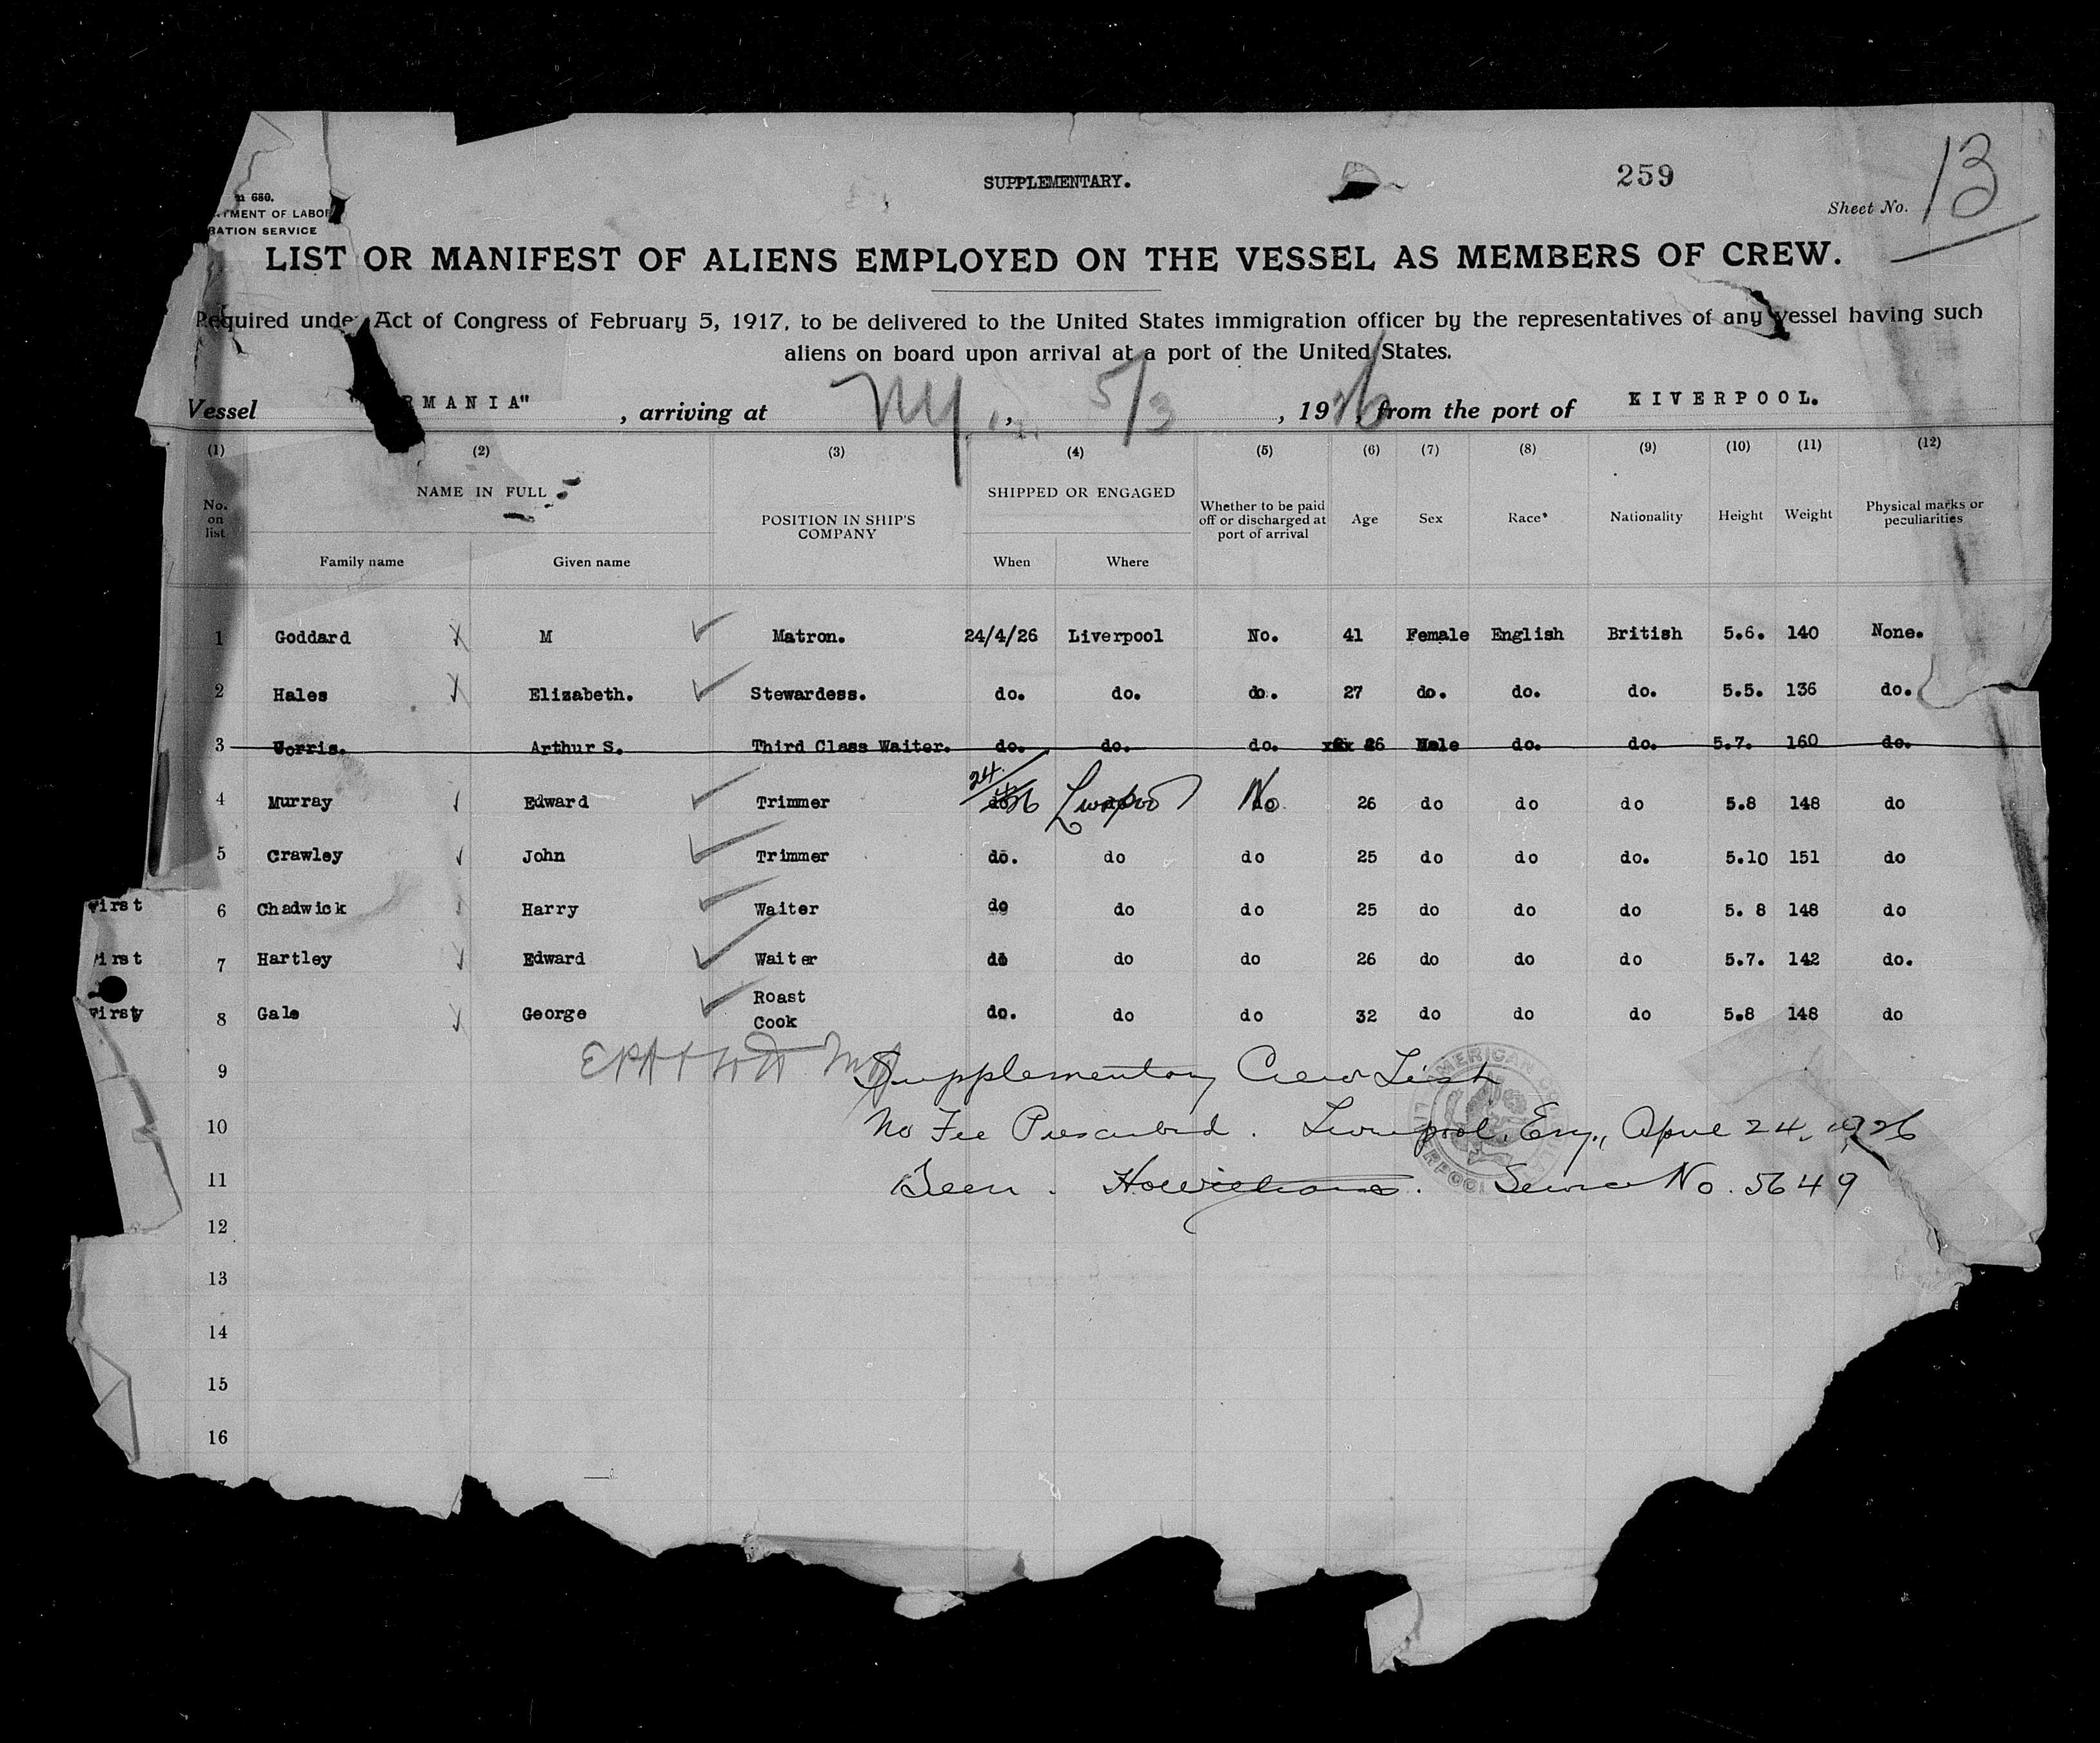 SUPPLEMENTARY.
259
Sheet No. 13
680.
TMENT OF LABOR
RATION SERVICE
LIST OR MANIFEST OF ALIENS EMPLOYED ON THE VESSEL AS MEMBERS OF CREW.
Required under Act of Congress of February 5, 1917, to be delivered to the United States immigration officer by the representatives of any vessel having such
aliens on board upon arrival at a port of the United States.
Vessel RMANIA" , arriving at NY , 5/3 , 1926, from the port of KIVERPOOL.
(1) (2) (3) (4) (5) (6) (7) (8) (9) (10) (11) (12)
No. on list NAME IN FULL Family name Given name POSITION IN SHIP'S COMPANY SHIPPED OR ENGAGED When Where Whether to be paid off or discharged at port of arrival Age Sex Race* Nationality Height Weight Physical marks or peculiarities
1 Goddard M Matron. 24/4/26 Liverpool No. 41 Female English British 5.6. 140 None.
2 Hales Elizabeth. Stewardess. do. do. do. 27 do. do. do. 5.5. 136 do.
3 Arthur S. Third Class Waiter. do. do. do. 26 Male do. do. 5.7. 160 do.
4 Murray Edward Trimmer 24/4/26 Liverpool No 26 do do do 5.8 148 do
5 Crawley John Trimmer do. do do 25 do do do. 5.10 151 do
First 6 Chadwick Harry Waiter do do do 25 do do do 5. 8 148 do
irst 7 Hartley Edward Waiter do do do 26 do do do 5.7. 142 do.
First 8 Gale George Roast Cook do. do do 32 do do do 5.8 148 do
9 Supplementary Crew List
10 No Fee Prescribed. Liverpool, Eng., April 24, 1926
11 Seen. Service No. 5649
12
13
14
15
16